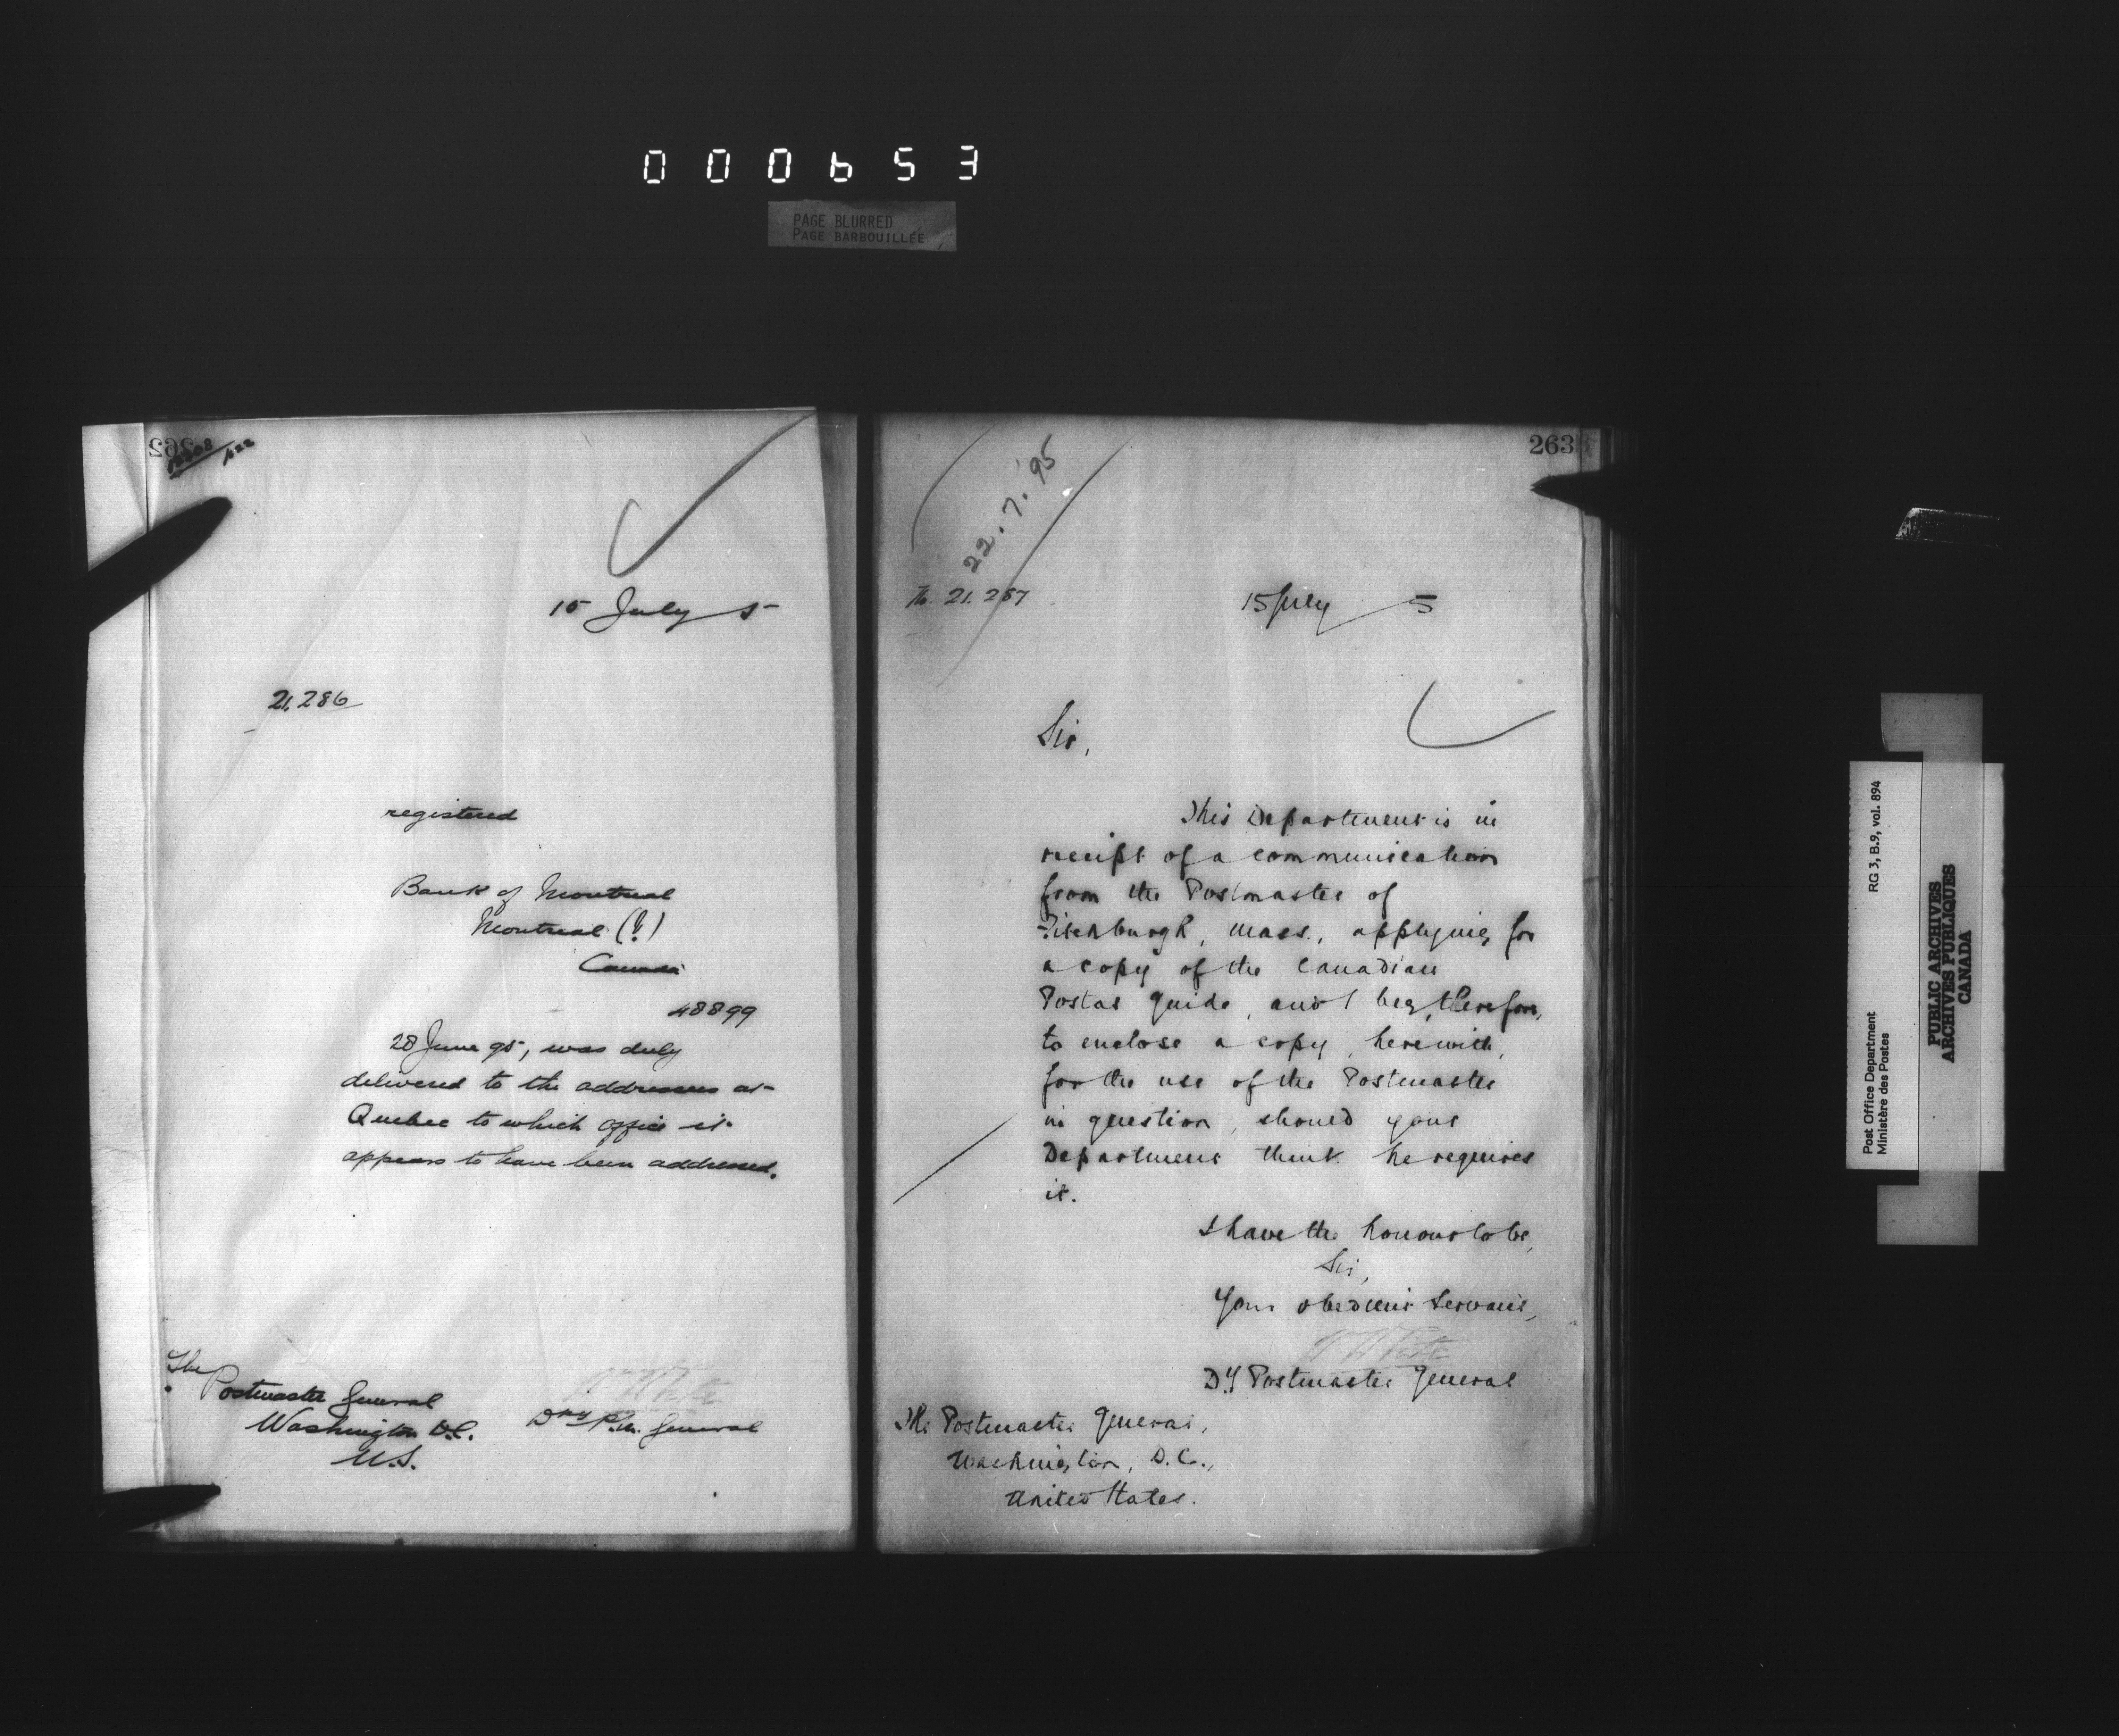 000653
PAGE BLURRED
PAGE BARBOUILLÉE
262
/622
15 July 5
21,286
registered
Bank of Montreal
Montreal (?)
Canada
48899
28 June 95, was duly
delivered to the addressees at
Quebec to which office it
appears to have been addressed.
The
Postmaster General
Washington D.C.
U.S.
Dpy P.M. General
263
22.7.'95
No. 21.287
15 July 5
Sir,
This Department is in
receipt of a communication
from the Postmaster of
Fitchburgh, Mass., applying for
a copy of the Canadian
Postal Guide, and I beg, therefore,
to enclose a copy, herewith,
for the use of the Postmaster
in question, should your
Department think he requires
it.
I have the honour to be,
Sir,
Your obedient Servant,
W White
Dy Postmaster General
The Postmaster General,
Washington, D.C.,
United States.
Post Office Department
Ministère des Postes
RG 3, B.9, vol. 894
PUBLIC ARCHIVES
ARCHIVES PUBLIQUES
CANADA